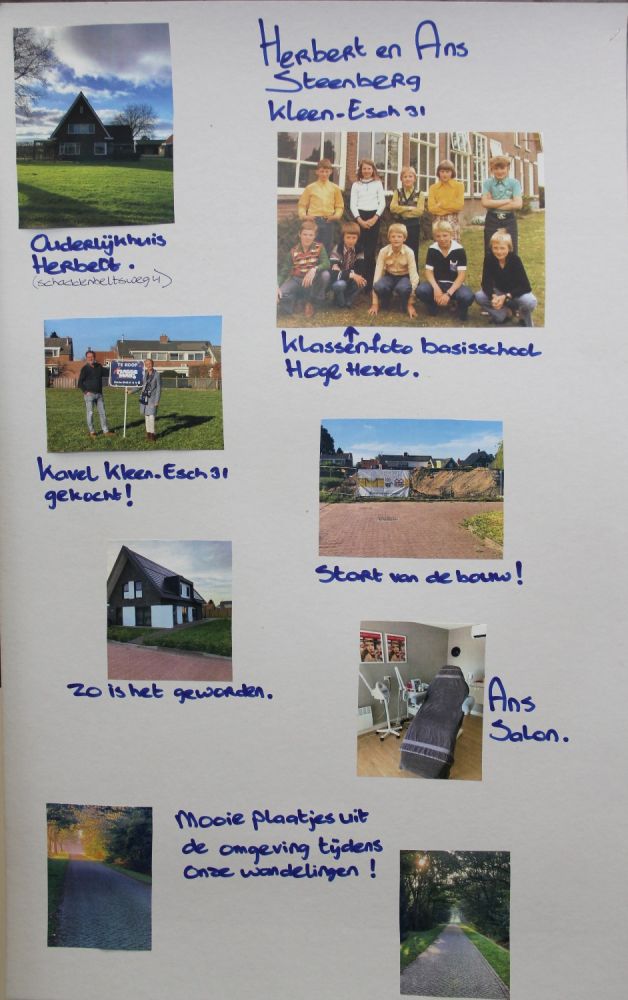 Herbert en Ans
Steenberg
Kleen-Esch 31
Ouderlijkhuis
Herbert.
(schaddenbeltsweg 4)
Klassenfoto basisschool
Hoge Hexel.
TE KOOP
Kavel Kleen-Esch 31
gekocht!
Start van de bouw!
Zo is het geworden.
Ans
Salon.
Mooie plaatjes uit
de omgeving tijdens
onze wandelingen!